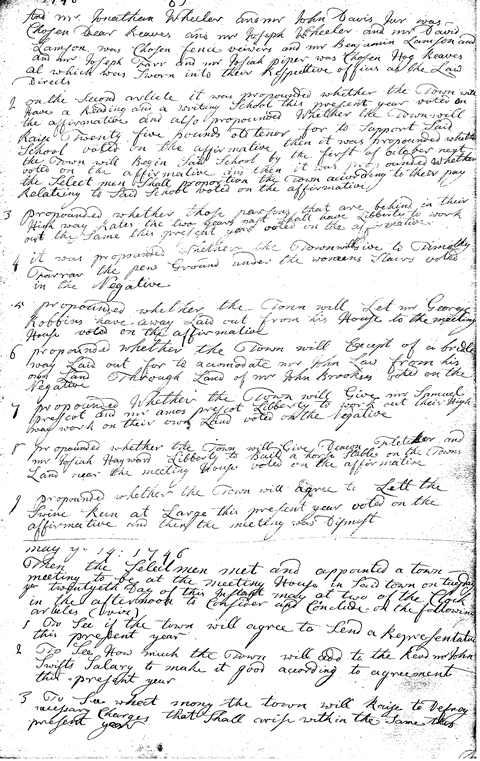 And mr Jonathan Wheeler and mr John Davis Jur was
Chosen Dear Reaves and mr Joseph Wheeler and mr David
Lamson was Chosen fence veivers and mr Benjamin Lamson and
and mr Joseph Farr and mr Josiah piper was Chosen Hog Reaves
al which was Sworn into their Respective offices as the Law
Directs
2 on the Second article it was propounded whether the Town will
Have a Reading and a writing School this present year voted on
the affirmative and also propounded Whether the Town will
Raise Twenty five pounds old tenor for to Support Said
School voted on the affirmative then it was propounded whether
the Town will Begin Said School by the first of October next
voted on the affirmative and then it was propounded Whether
the Select men Shall proportion the Town according to their pay
Relating to Said School voted on the affirmative
3 propounded whether those parsons that are behind in their
High way Rates the two years past shall have Liberty to work
out the Same this present year voted on the affirmative
4 it was propounded Whether the Town will Give to Timothy
Farrar the pew Ground under the womens Stairs voted
in the Negative
5 propounded whether the Town will Let mr George
Robbins have away Laid out from his House to the meeting
House voted on the affirmative
6 propounded whether the Town will Except of a bridle
way Laid out for to acomodate mr John Law from his
own Land Through Land of mr John Brooks voted on the
Negative
7 propounded Whether the Town will Give mr Samuel
prescot and mr amos prescot Libberty to work out their High
way work on their own Land voted on the Negative
8 propounded whether the Town will Give Deacon and
mr Josiah Hayward Libberty to Buld a horse Stables on the Towns
Land near the meeting House voted on the affirmative
9 propounded whether the Town will agree to Lett the
Swine Run at Large this present year voted on the
affirmative and then the meeting was Dismist
may ye 14: 1746
Then the Select men met and appointed a town
meeting to be at the meeting House in Said town on tuesday
ye twentyeth Day of this Instant may at two of the Clock
in the afternoon to Consider and Conclude on the following
articles (viz)
1 To See if the town will agree to Send a Representative
this present year
2 To See How much the Town will add to the Revd mr John
Swifts Salary to make it good acording to agreement
this present year
3 To See what mony the town will Raise to Defray
necessary Charges that Shall arise within the Same this
present year